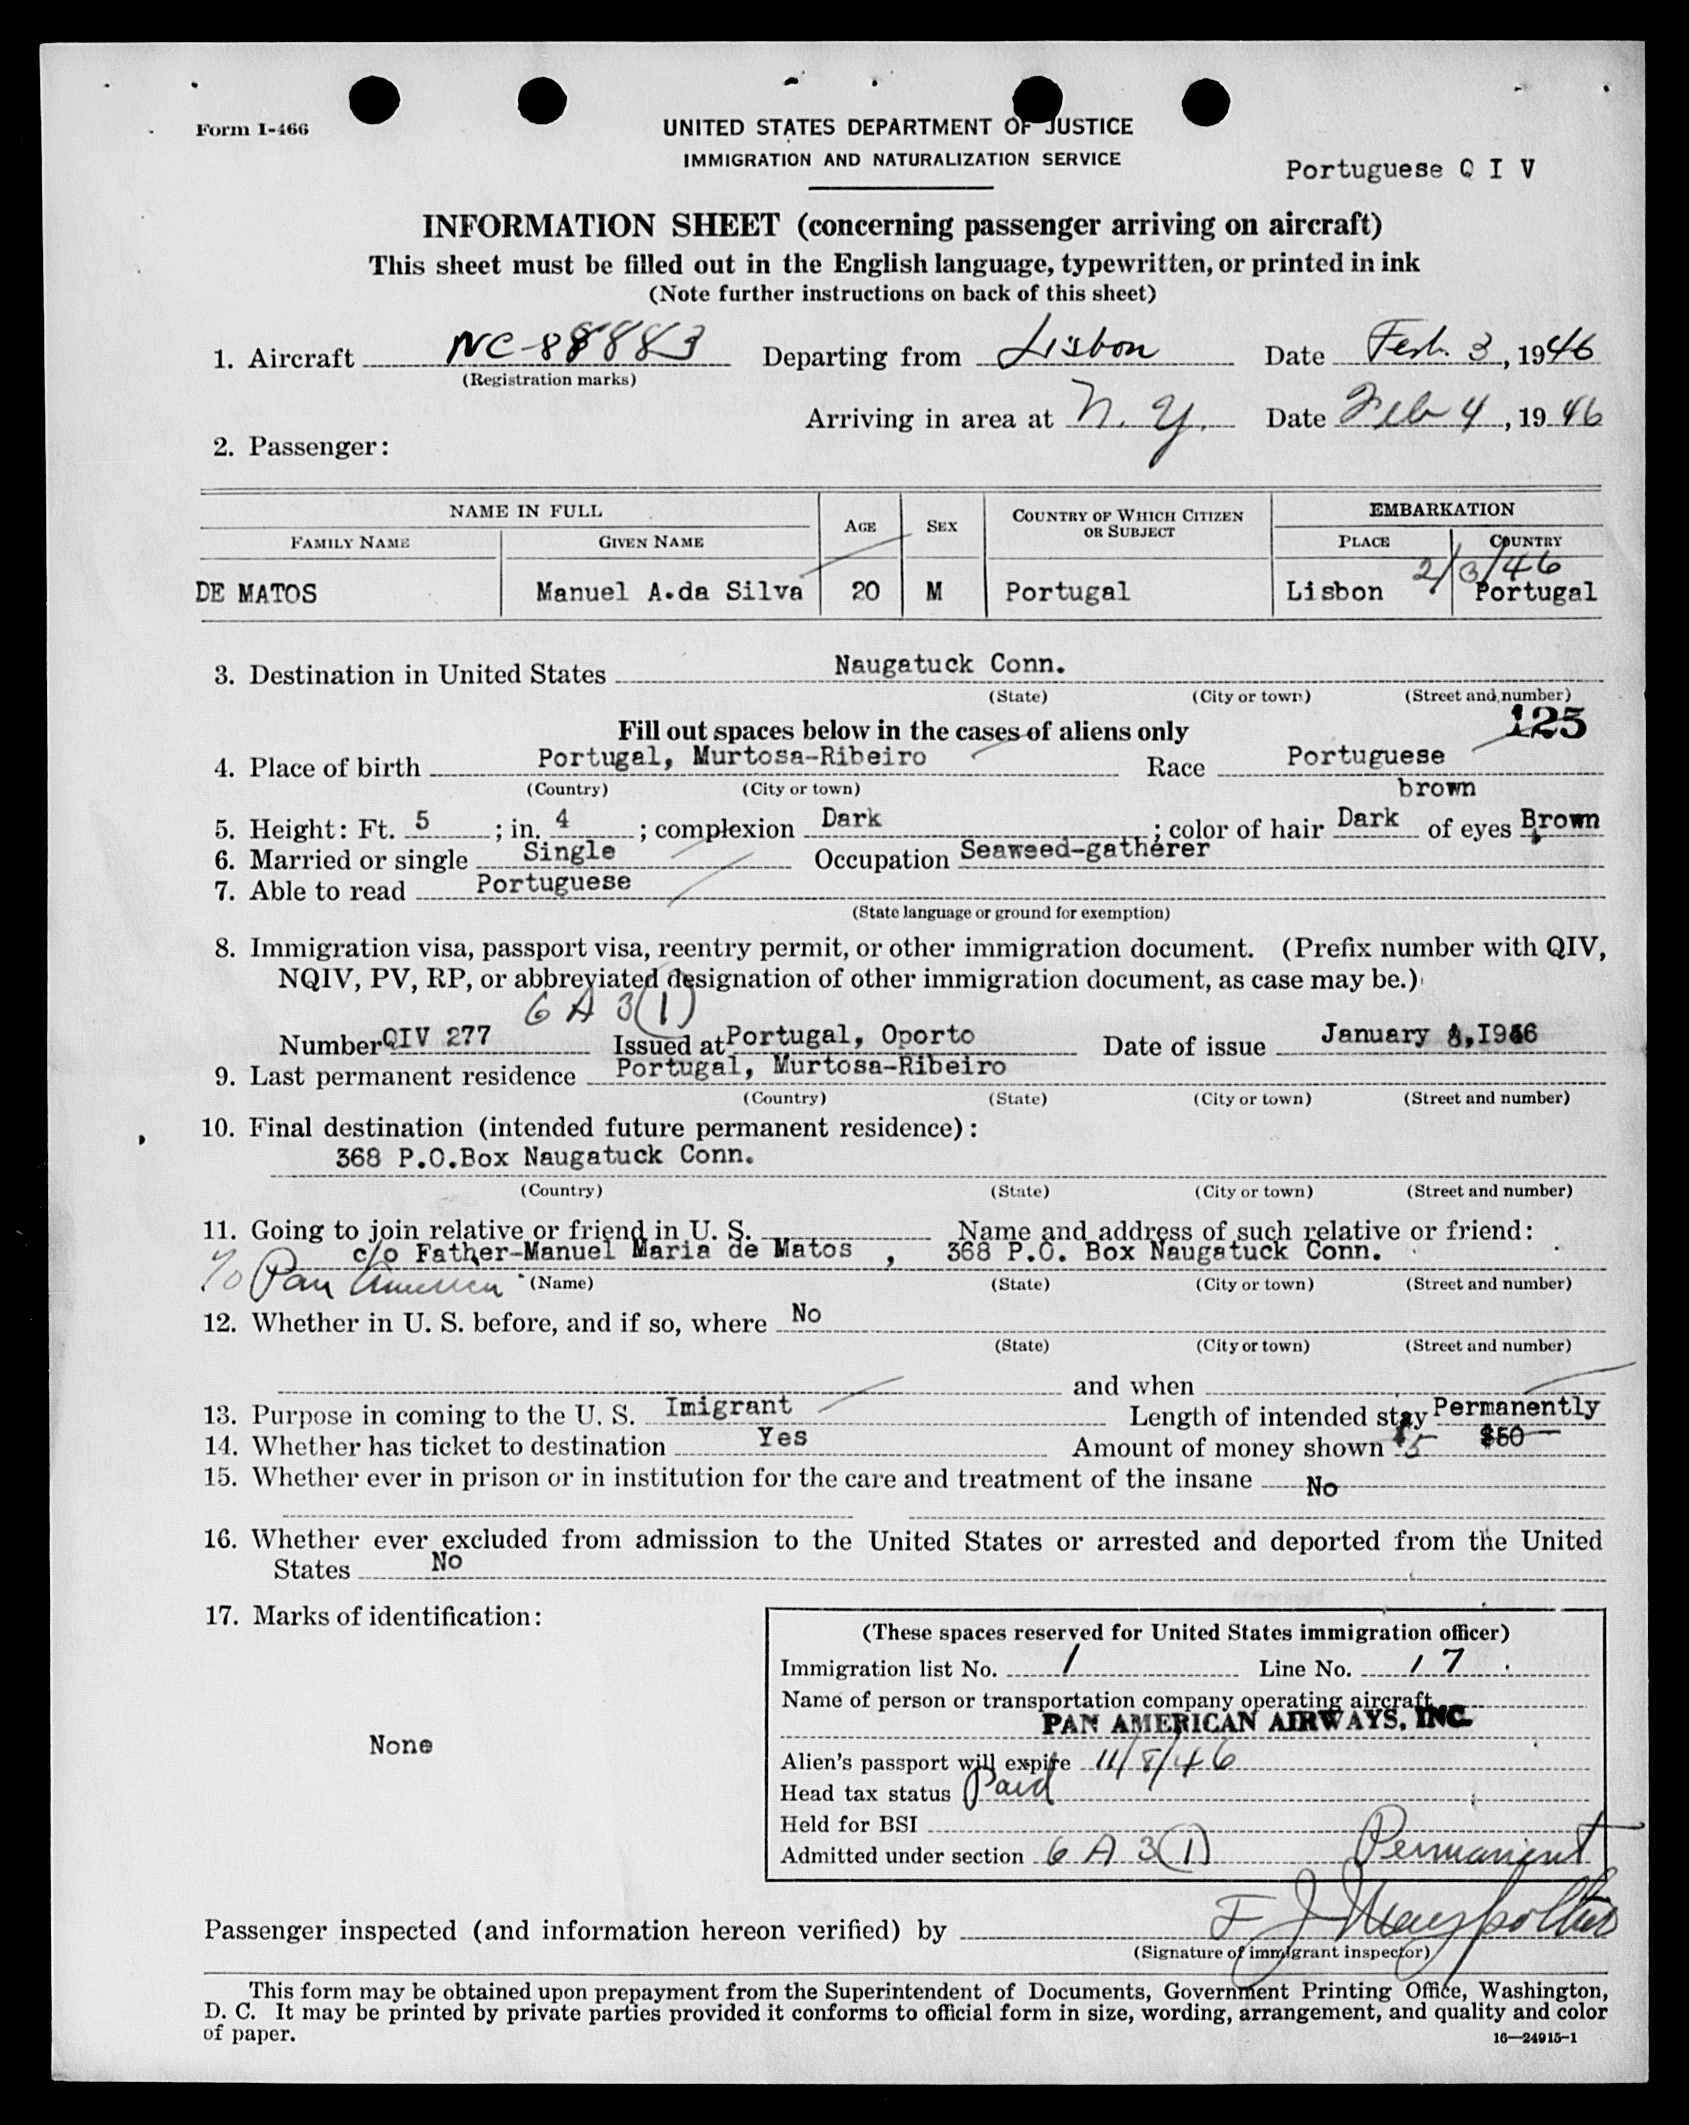 Form I-466
UNITED STATES DEPARTMENT OF JUSTICE
IMMIGRATION AND NATURALIZATION SERVICE
Portuguese Q I V
INFORMATION SHEET (concerning passenger arriving on aircraft)
This sheet must be filled out in the English language, typewritten, or printed in ink
(Note further instructions on back of this sheet)
1. Aircraft NC-88883 Departing from Lisbon Date Feb. 3, 1946
(Registration marks)
Arriving in area at N. Y. Date Feb 4, 1946
2. Passenger:
NAME IN FULL AGE SEX COUNTRY OF WHICH CITIZEN OR SUBJECT EMBARKATION
FAMILY NAME GIVEN NAME PLACE COUNTRY
2/3/46
DE MATOS Manuel A.da Silva 20 M Portugal Lisbon Portugal
3. Destination in United States Naugatuck Conn.
(State) (City or town) (Street and number)
Fill out spaces below in the cases of aliens only 125
4. Place of birth Portugal, Murtosa-Ribeiro Race Portuguese
(Country) (City or town) brown
5. Height: Ft. 5; in. 4; complexion Dark; color of hair Dark of eyes Brown
6. Married or single Single Occupation Seaweed-gatherer
7. Able to read Portuguese
(State language or ground for exemption)
8. Immigration visa, passport visa, reentry permit, or other immigration document. (Prefix number with QIV,
NQIV, PV, RP, or abbreviated designation of other immigration document, as case may be.)
6 A 3(1)
Number QIV 277 Issued at Portugal, Oporto Date of issue January 8,1946
9. Last permanent residence Portugal, Murtosa-Ribeiro
(Country) (State) (City or town) (Street and number)
10. Final destination (intended future permanent residence):
368 P.O.Box Naugatuck Conn.
(Country) (State) (City or town) (Street and number)
11. Going to join relative or friend in U. S. Name and address of such relative or friend:
c/o Father-Manuel Maria de Matos , 368 P.O. Box Naugatuck Conn.
% Pan American (Name) (State) (City or town) (Street and number)
12. Whether in U. S. before, and if so, where No
(State) (City or town) (Street and number)
and when
13. Purpose in coming to the U. S. Imigrant Length of intended stay Permanently
14. Whether has ticket to destination Yes Amount of money shown $5 $50
15. Whether ever in prison or in institution for the care and treatment of the insane No
16. Whether ever excluded from admission to the United States or arrested and deported from the United
States No
17. Marks of identification:
None
(These spaces reserved for United States immigration officer)
Immigration list No. 1 Line No. 17
Name of person or transportation company operating aircraft
PAN AMERICAN AIRWAYS, INC.
Alien's passport will expire 11/8/46
Head tax status Paid
Held for BSI
Admitted under section 6 A 3(1) Permanent
Passenger inspected (and information hereon verified) by F J
(Signature of immigrant inspector)
This form may be obtained upon prepayment from the Superintendent of Documents, Government Printing Office, Washington,
D. C. It may be printed by private parties provided it conforms to official form in size, wording, arrangement, and quality and color
of paper.
16—24915-1